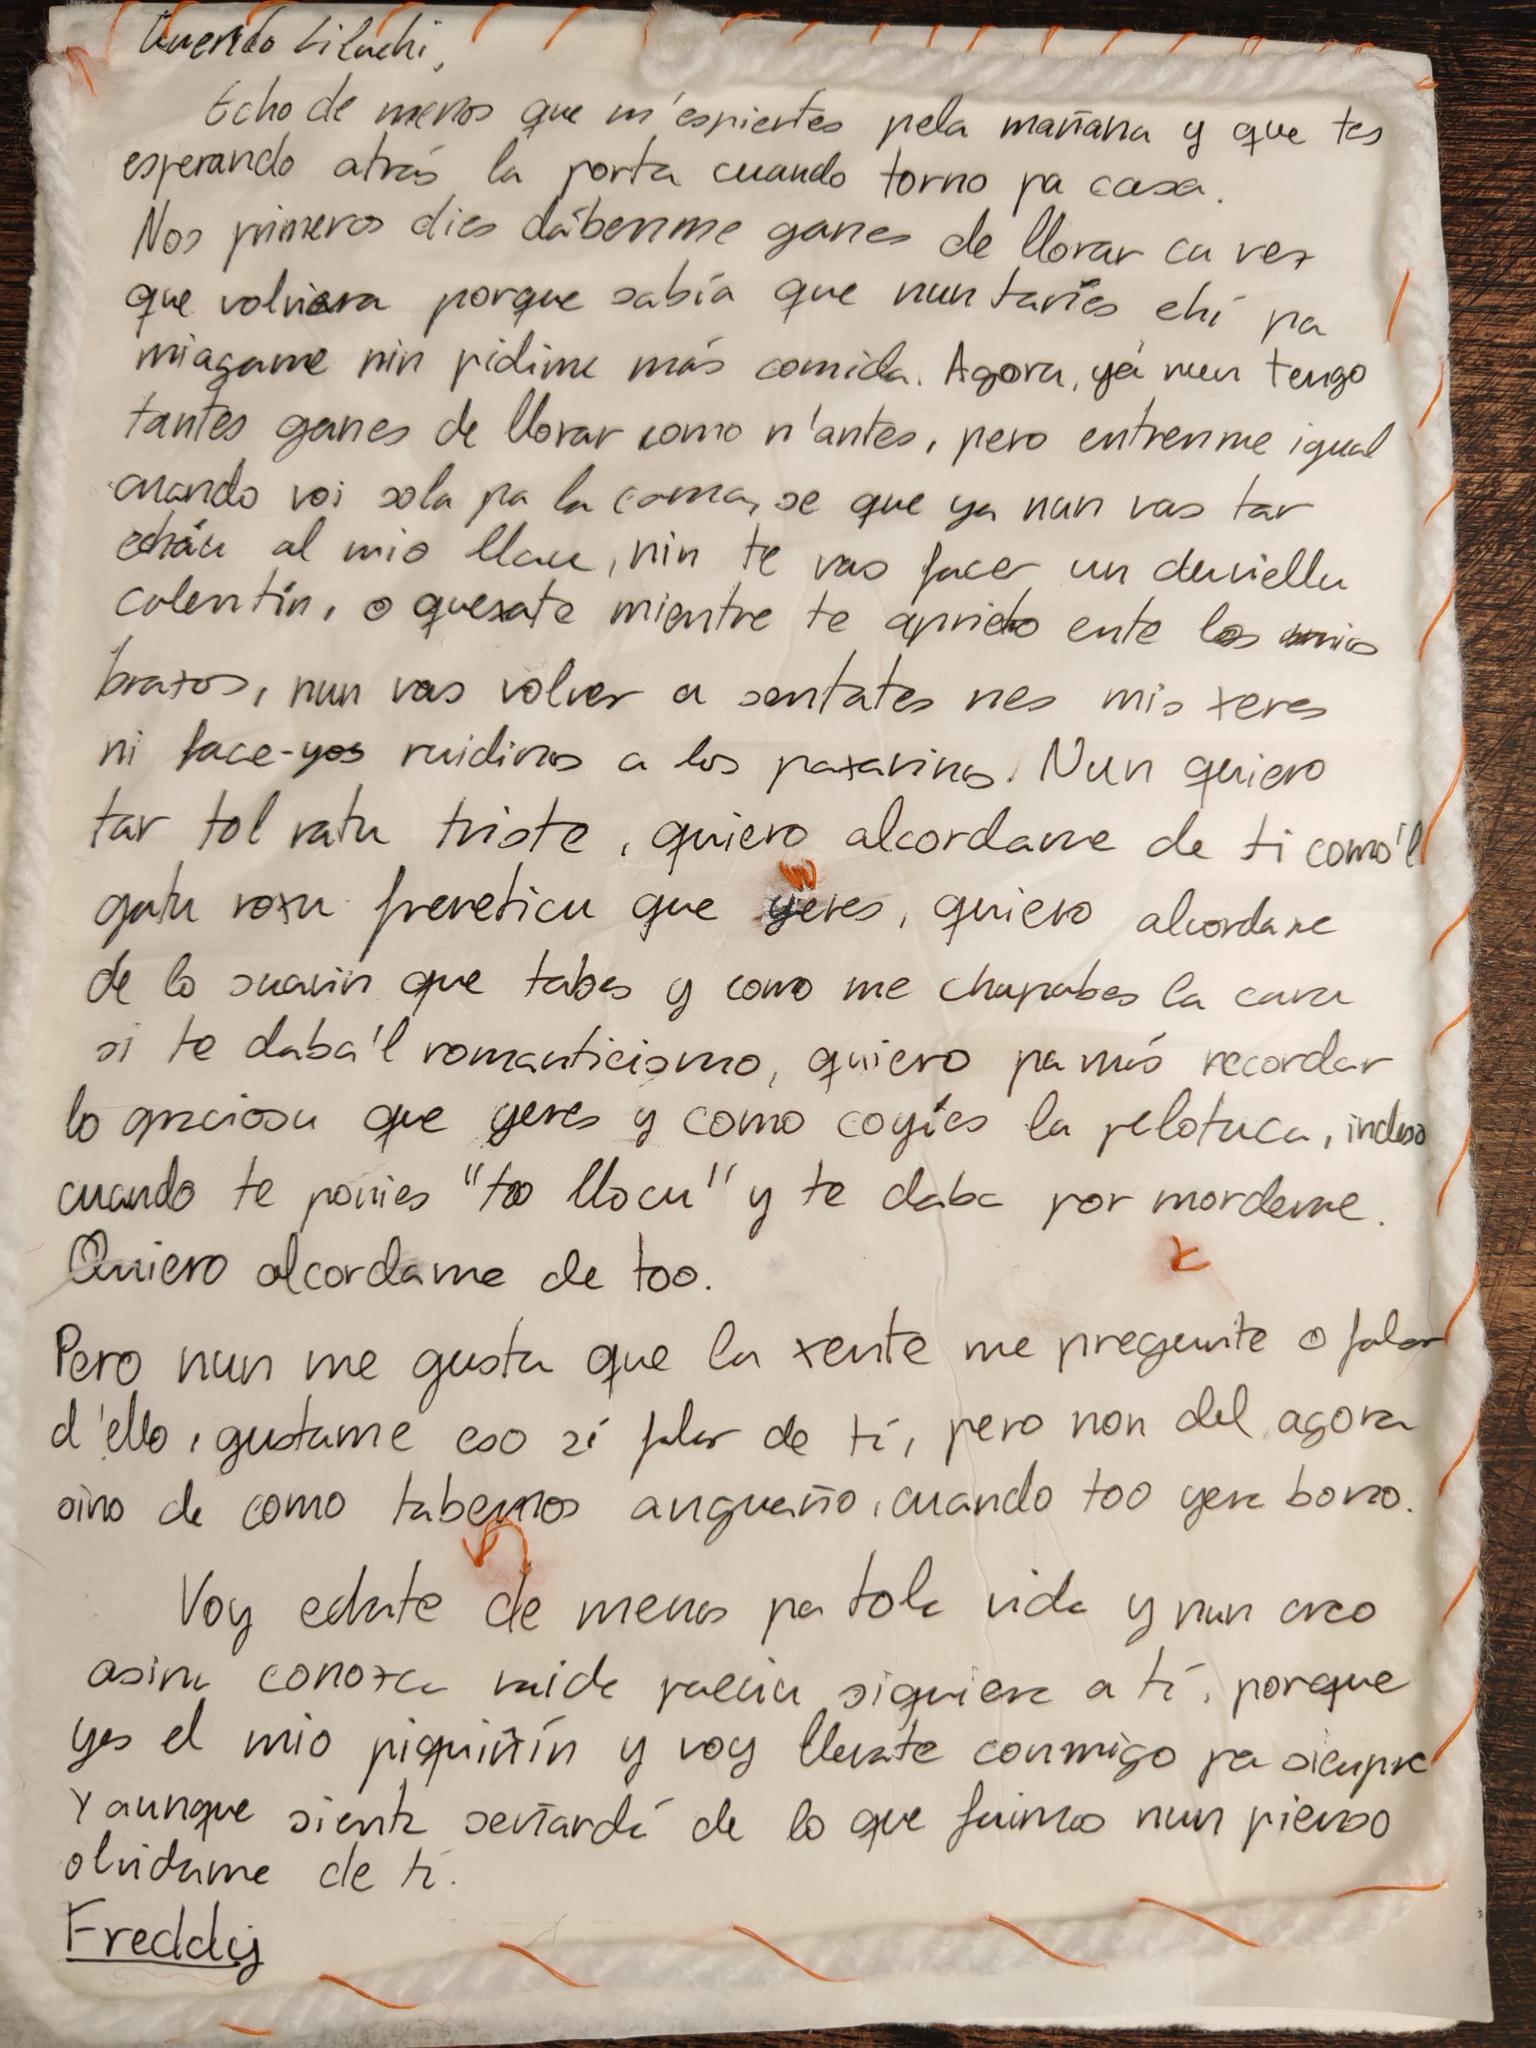 Querido Liluchi,
Echo de menos que m'espiertes pela mañana y que tes
esperando atrás la porta cuando torno pa casa.
Nos primeros dies dábenme ganes de llorar ca vez
que volviera porque sabía que nun taríes ehí pa
miagame nin pidime más comida. Agora, yá nun tengo
tantes ganes de llorar como n'antes, pero entrenme igual
cuando voi sola pa la cama, se que ya nun vas tar
echáu al mio llau, nin te vas facer un duviellu
calentín, o quexate mientre te aprieto ente los mios
brazos, nun vas volver a sentates nes mis xeres
ni face-yos ruidinos a los paxarinos. Nun quiero
tar tol ratu triste, quiero alcordame de ti como'l
gatu roxu freneticu que yeres, quiero alcordame
de lo suavin que tabes y como me chupabes la cara
si te daba'l romanticismo, quiero pa mís recordar
lo graciosu que yeres y como coyíes la pelotuca, incluso
cuando te poníes "too llocu" y te daba por mordeme.
Quiero alcordame de too.
Pero nun me gusta que la xente me pregunte o falar
d'ello, gustame eso sí falar de tí, pero non del agora
sino de como tabemos anguaño, cuando too yera bono.
Voy echate de menos pa tola vida y nun creo
asina conozca naide paecíu siquiera a tí, porque
yes el mio piquiñín y voy llevate conmigo pa siempre
Y aunque sienta señardá de lo que fuimos nun pienso
olvidame de tí.
Freddy